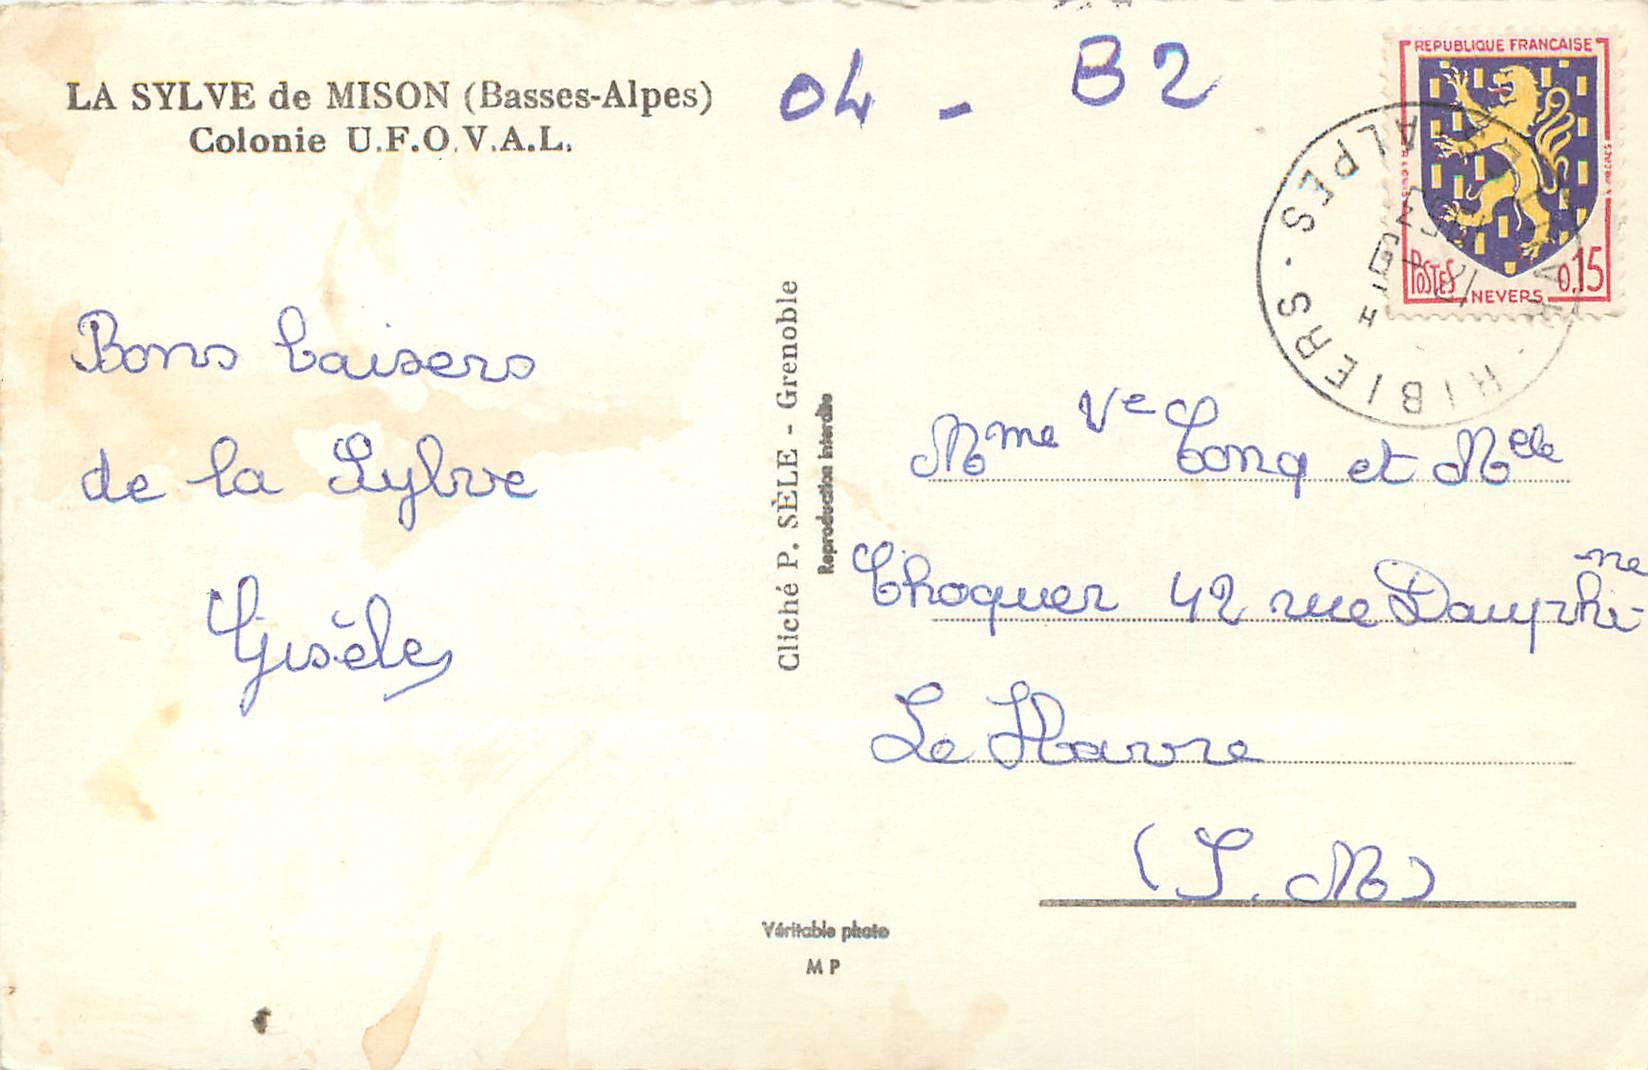 LA SYLVE de MISON (Basses-Alpes)
Colonie U.F.O.V.A.L.
04 - B2
REPUBLIQUE FRANCAISE
POSTES
0,15
NEVERS
RIBIERS
ALPES
Bons baisers
de la Sylve
Gisèle
Cliché P. SÈLE - Grenoble
Reproduction interdite
Mme Ve Conq et Melle
Choquer 42 rue Dauphi-
ne
Le Havre
(S. M)
Véritable photo
M P